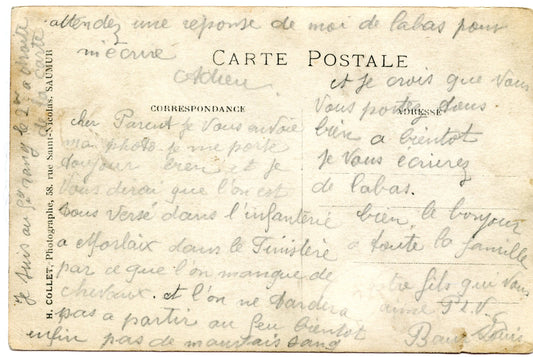 attendez une réponse de moi de labas pour
m'écrire
Adieu
CARTE POSTALE
CORRESPONDANCE
ADRESSE
cher Parent je vous envoie
ma photo. je me porte
toujour bien et je
vous derai que l'on est
tous versé dans l'infanterie
a Morlaix dans le Finistère
par ce que l'on manque de
chevaux. et l'on ne tardera
pas a partir au feu bientot
enfin pas de mauvais sang
et je crois que vous
vous portez tous
bien a bientot
je vous écrirez
de labas.
bien le bonjour
a toute la famille
votre fils qui vous
aime P.L.V.
Louis
je suis au 3e rang le 2me a droite
de la carte
H. COLLET, Photographe, 58, rue Saint-Nicolas, SAUMUR